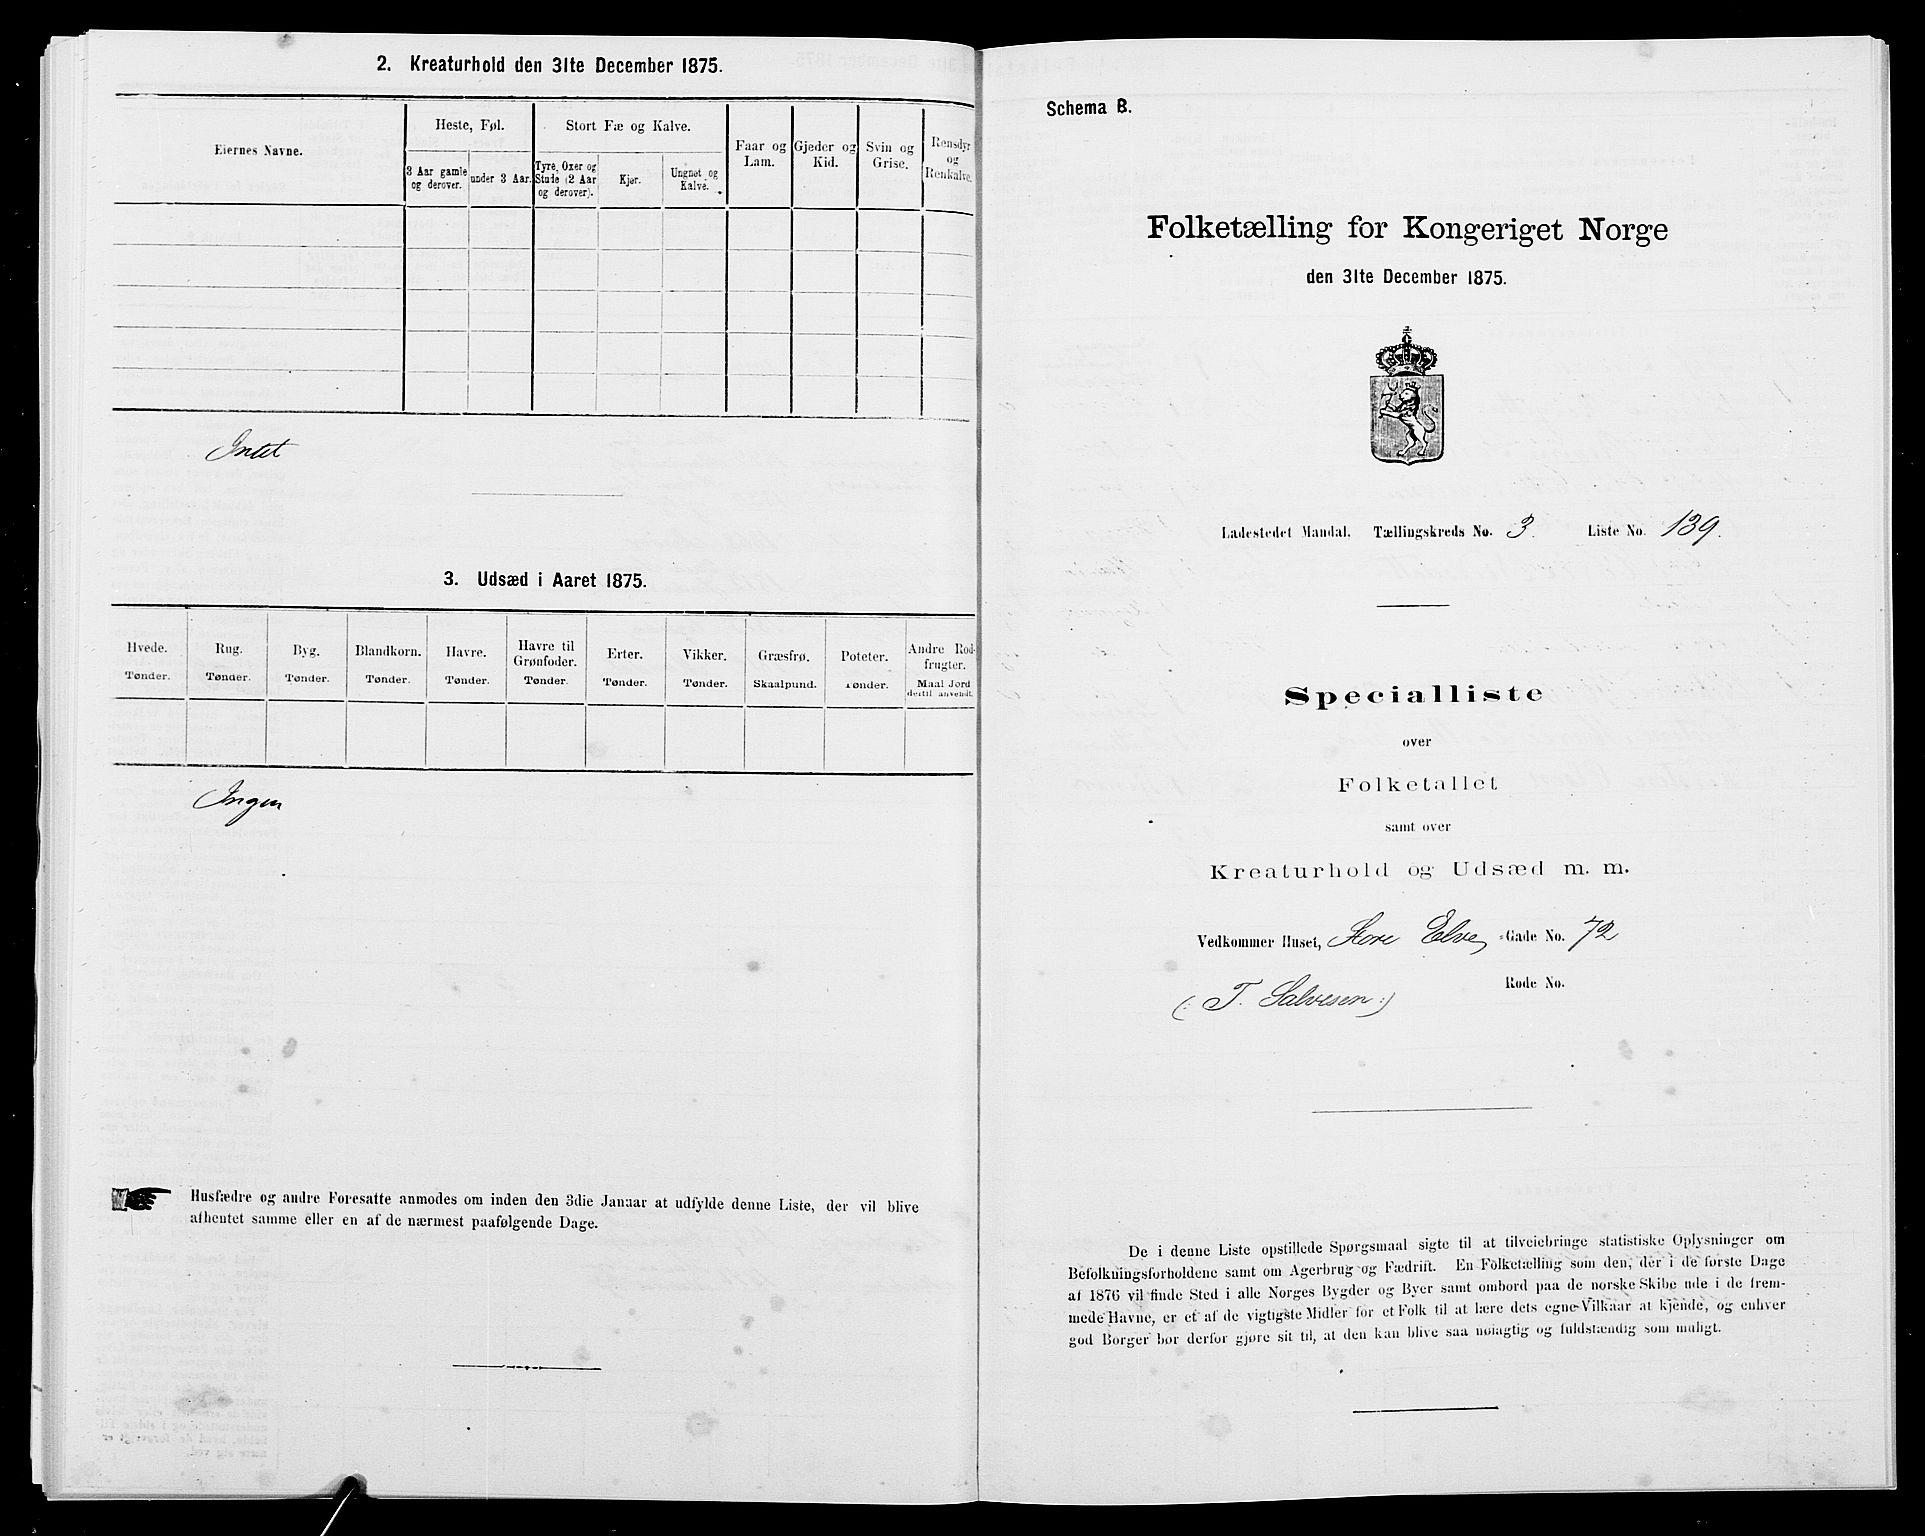 2. Kreaturhold den 31te December 1875.
Eiernes Navne.
Heste, Føl.
Stort Fæ og Kalve.
Faar og
Lam.
Gjeder og
Kid.
Svin og
Grise.
Rensdyr
og
Renkalve.
3 Aar gamle
og derover.
under 3 Aar.
Tyre, Oxer og
Stude (2 Aar
og derover).
Kjør.
Ungnøt og
Kalve.
Intet
3. Udsæd i Aaret 1875.
Hvede.
Tønder.
Rug.
Tønder.
Byg.
Tønder.
Blandkorn.
Tønder.
Havre.
Tønder.
Havre til
Grønfoder.
Tønder.
Erter.
Tønder.
Vikker.
Tønder.
Græsfrø.
Skaalpund.
Poteter.
Tønder.
Andre Rod-
frugter.
Maal Jord
dertil anvendt.
Ingen
Husfædre og andre Foresatte anmodes om inden den 3die Januar at udfylde denne Liste, der vil blive
afhentet samme eller en af de nærmest paafølgende Dage.
Schema B.
Folketælling for Kongeriget Norge
den 31te December 1875.
Ladestedet Mandal. Tællingskreds No. 3. Liste No. 139.
Specialliste
over
Folketallet
samt over
Kreaturhold og Udsæd m. m.
Vedkommer Huset, Store Elve-Gade No. 72
Rode No.
(: T. Salvesen :)
De i denne Liste opstillede Spørgsmaal sigte til at tilveiebringe statistiske Oplysninger om
Befolkningsforholdene samt om Agerbrug og Fædrift. En Folketælling som den, der i de første Dage
af 1876 vil finde Sted i alle Norges Bygder og Byer samt ombord paa de norske Skibe ude i de frem-
mede Havne, er et af de vigtigste Midler for et Folk til at lære dets egne Vilkaar at kjende, og enhver
god Borger bør derfor gjøre sit til, at den kan blive saa nøiagtig og fuldstændig som muligt.